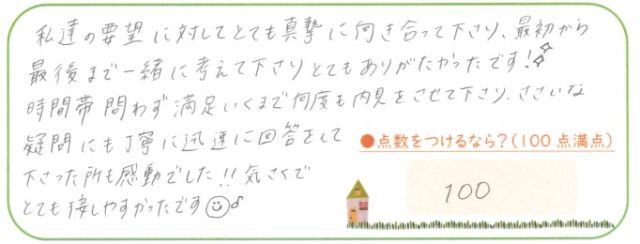 私達の要望に対してとても真摯に向き合って下さり、最初から
最後まで一緒に考えて下さりとてもありがたかったです!
時間帯問わず満足いくまで何度も内見をさせて下さり、ささいな
疑問にも丁寧に迅速に回答をして
下さった所も感動でした!!気さくで
とても接しやすかったです
●点数をつけるなら?(100点満点)
100